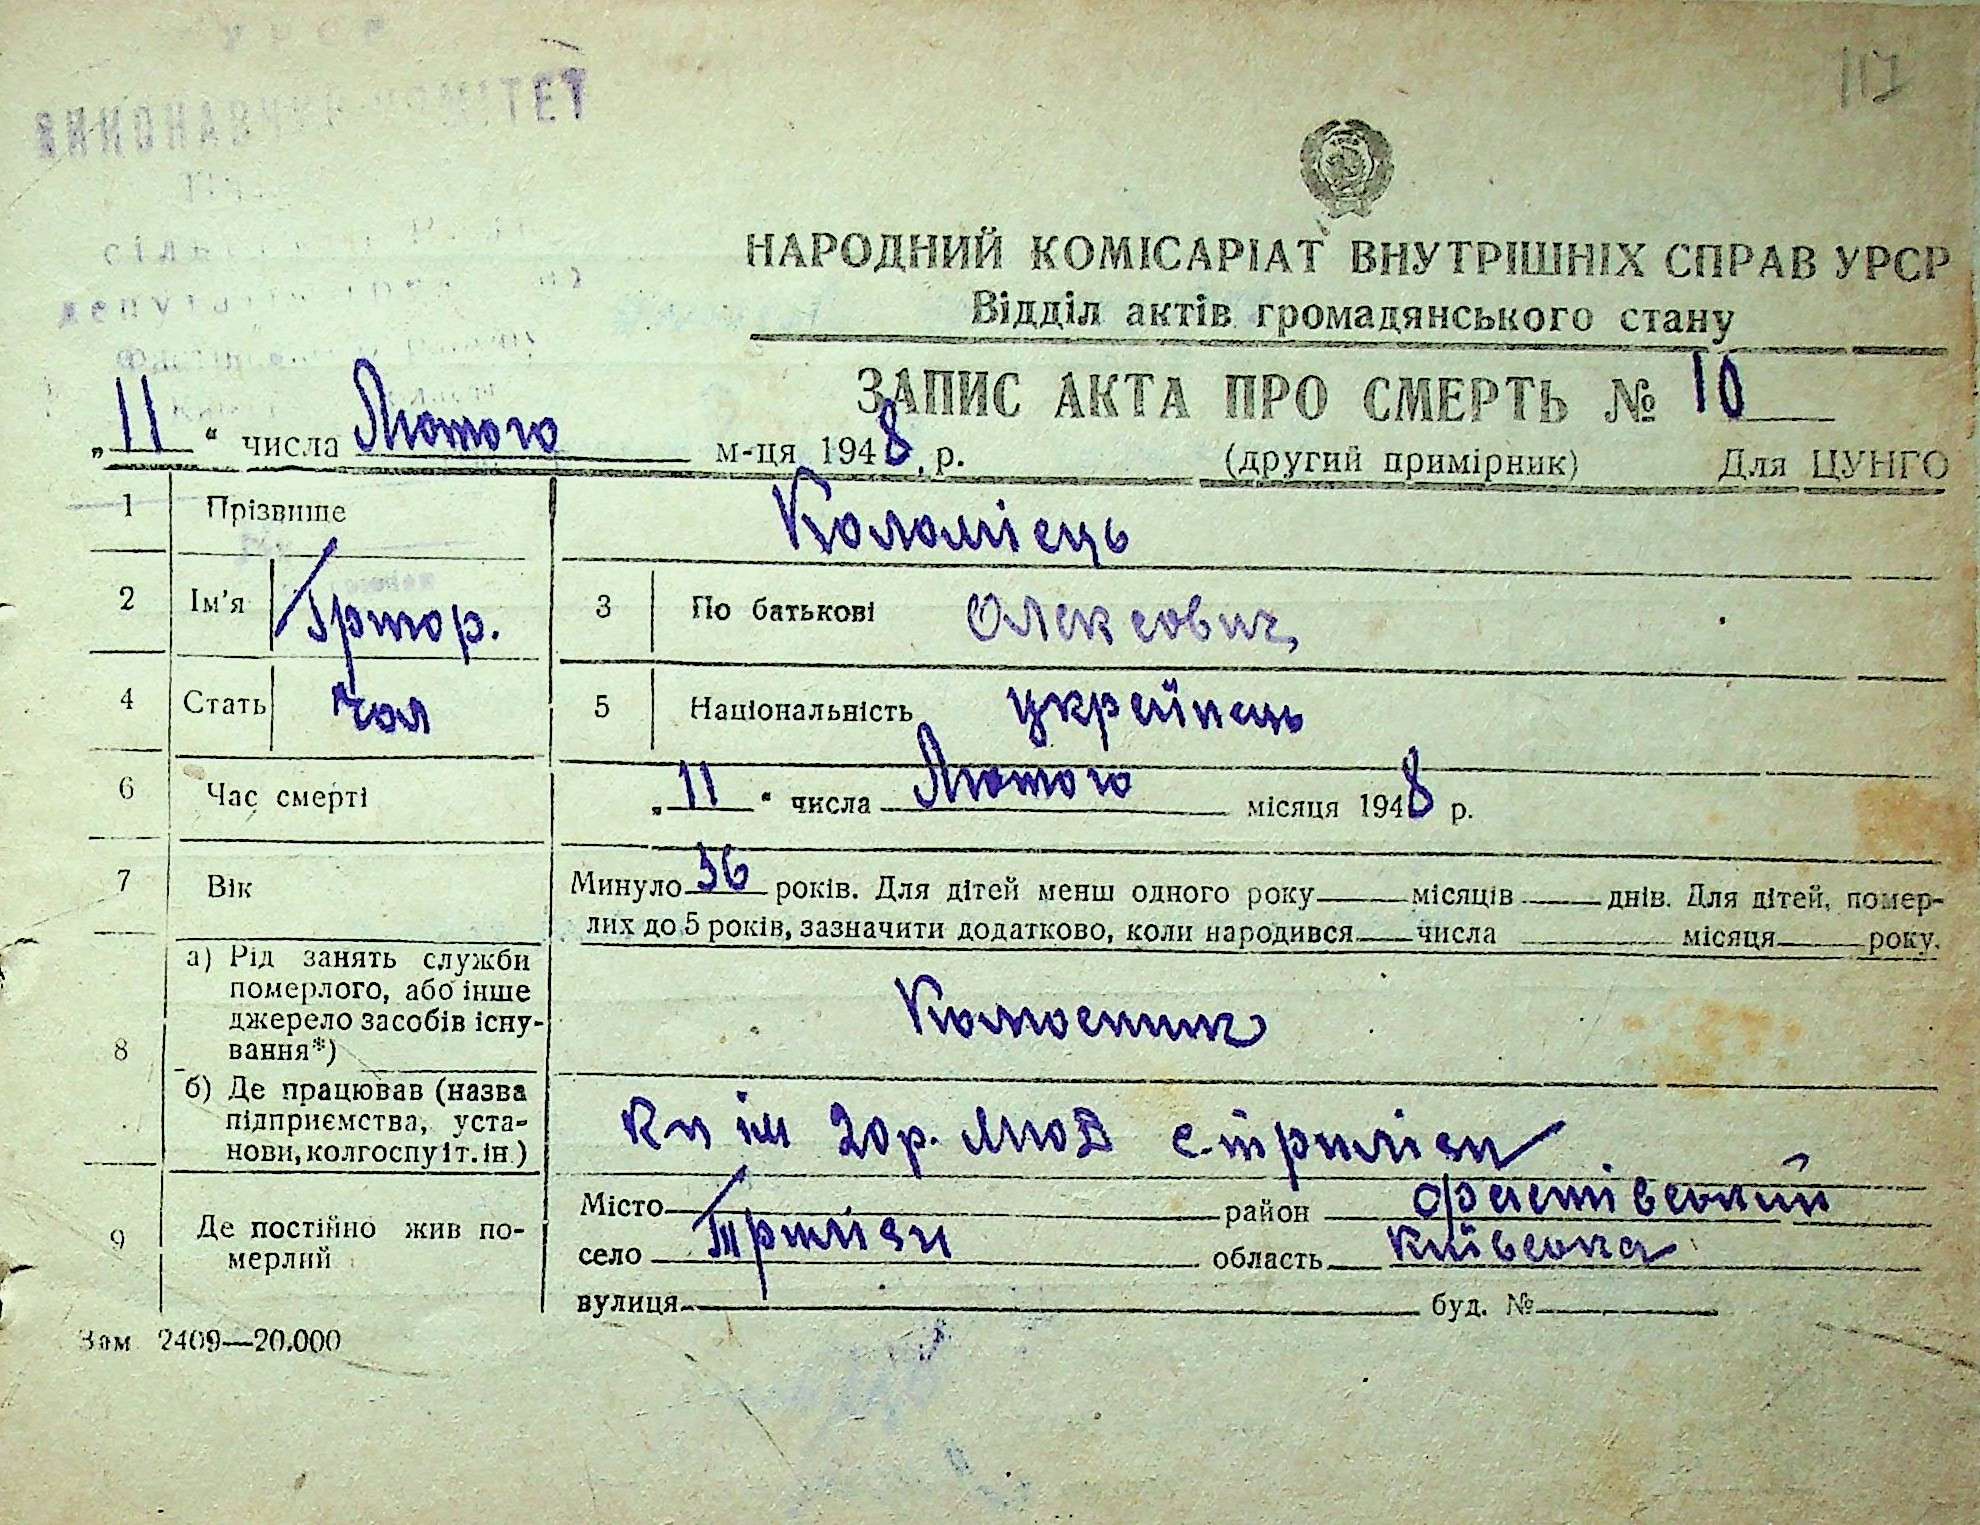 УРСР
ВИКОНАВЧИЙ КОМІТЕТ
117
НАРОДНИЙ КОМІСАРІАТ ВНУТРІШНІХ СПРАВ УРСР
Відділ актів громадянського стану
ЗАПИС АКТА ПРО СМЕРТЬ № 10
„11“ числа Лютого м-ця 1948, р. (другий примірник) Для ЦУНГО
1 Прізвище Коломієць
2 Ім'я Григор. 3 По батькові Олексеович
4 Стать чол 5 Національність українець
6 Час смерті „11“ числа Лютого місяця 1948 р.
7 Вік Минуло 36 років. Для дітей менш одного року місяців днів. Для дітей, помер-
лих до 5 років, зазначити додатково, коли народився числа місяця року.
8 а) Рід занять служби
померлого, або інше
джерело засобів існу-
вання*)
Колгоспник
б) Де працював (назва
підприємства, уста-
нови, колгоспу і т. ін.)
Кп ім 20 р. ЖТ с. Триліси
9 Де постійно жив по-
мерлий
Місто район Фастівський
село Триліси область Київська
вулиця буд. №
Зам 2409—20.000